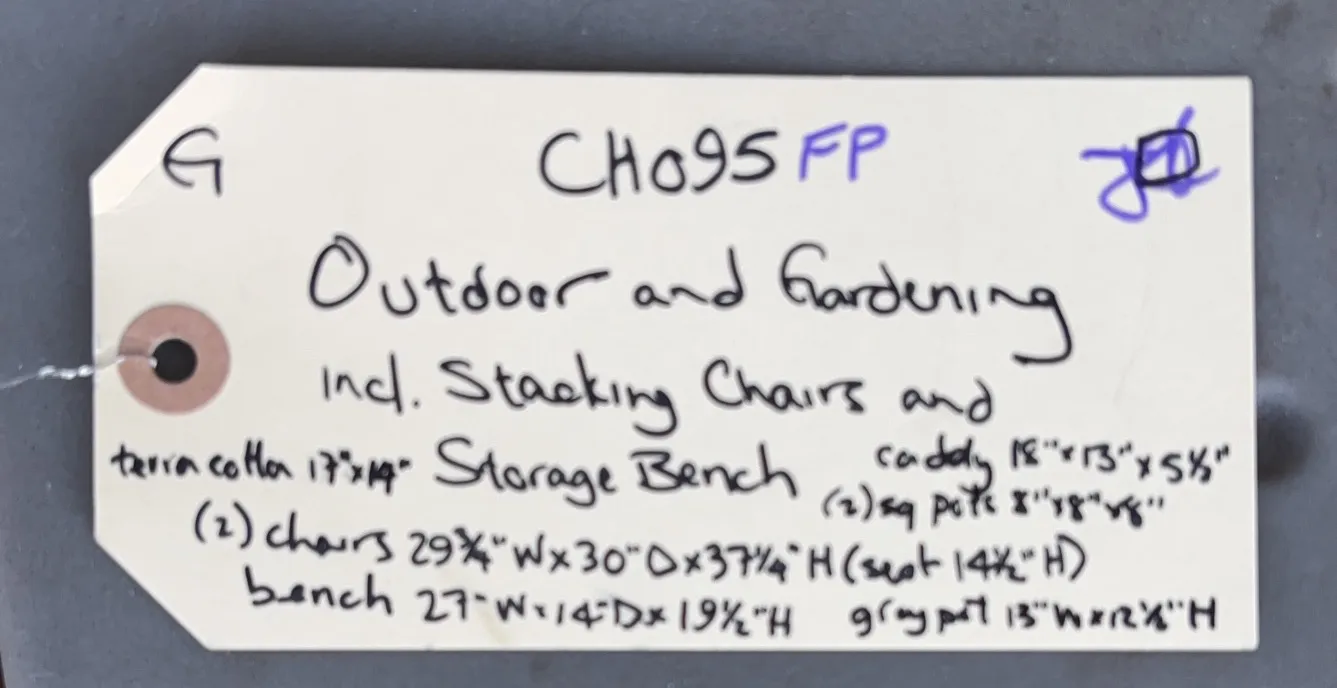 G CHO95 FP
Outdoor and Gardening
incl. Stacking Chairs and
terra cotta 17"x14" Storage Bench caddy 18"x13"x5½"
(2) sq pots 8"x8"x8"
(2) chairs 29¾"W x 30"D x 37¼"H (seat 14½"H)
bench 27"W x 14"D x 19½"H gray pot 13"W x 12½"H